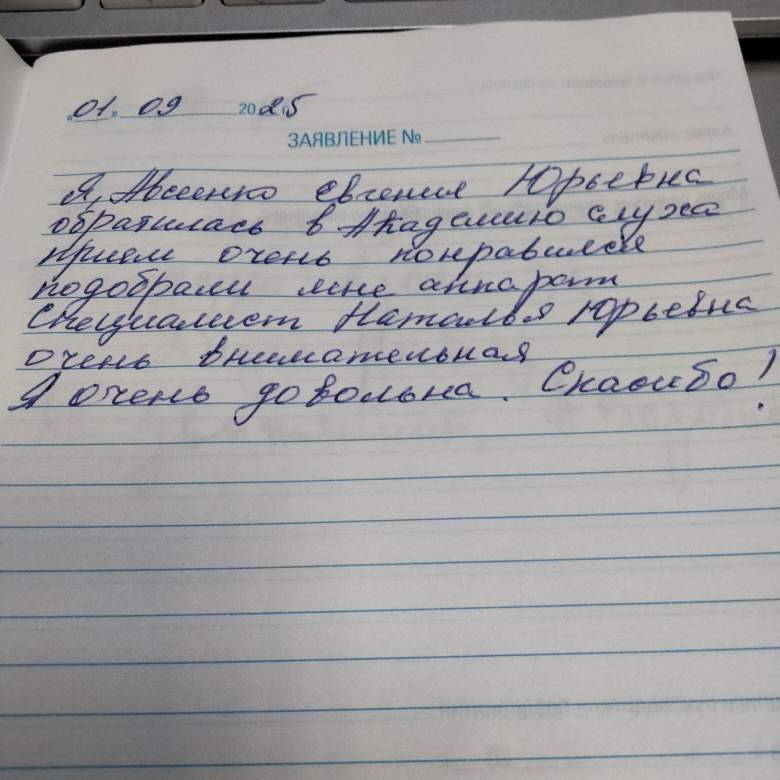 „01" 09 2025
ЗАЯВЛЕНИЕ №
Я, Авсеенко Евгения Юрьевна
обратилась в Академию слуха
прием очень понравился
подобрали мне аппарат
Специалист Наталья Юрьевна
очень внимательная
Я очень довольна. Спасибо!